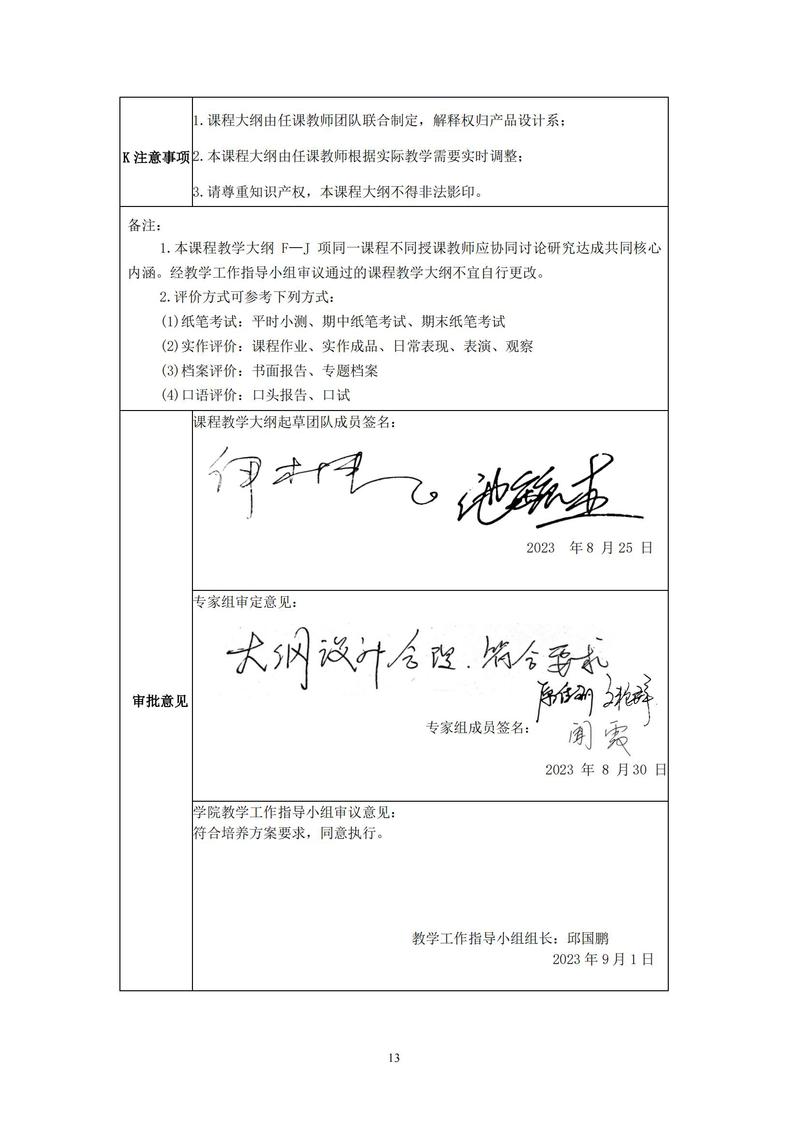 1.课程大纲由任课教师团队联合制定，解释权归产品设计系；
K 注意事项
2.本课程大纲由任课教师根据实际教学需要实时调整；
3.请尊重知识产权，本课程大纲不得非法影印。
备注：
1.本课程教学大纲 F—J 项同一课程不同授课教师应协同讨论研究达成共同核心
内涵。经教学工作指导小组审议通过的课程教学大纲不宜自行更改。
2.评价方式可参考下列方式：
(1)纸笔考试：平时小测、期中纸笔考试、期末纸笔考试
(2)实作评价：课程作业、实作成品、日常表现、表演、观察
(3)档案评价：书面报告、专题档案
(4)口语评价：口头报告、口试
审批意见
课程教学大纲起草团队成员签名：
2023 年8 月 25 日
专家组审定意见：
大纲设计合理.符合要求
专家组成员签名：
闻霞
2023 年 8 月30 日
学院教学工作指导小组审议意见：
符合培养方案要求，同意执行。
教学工作指导小组组长：邱国鹏
2023 年 9 月 1 日
13